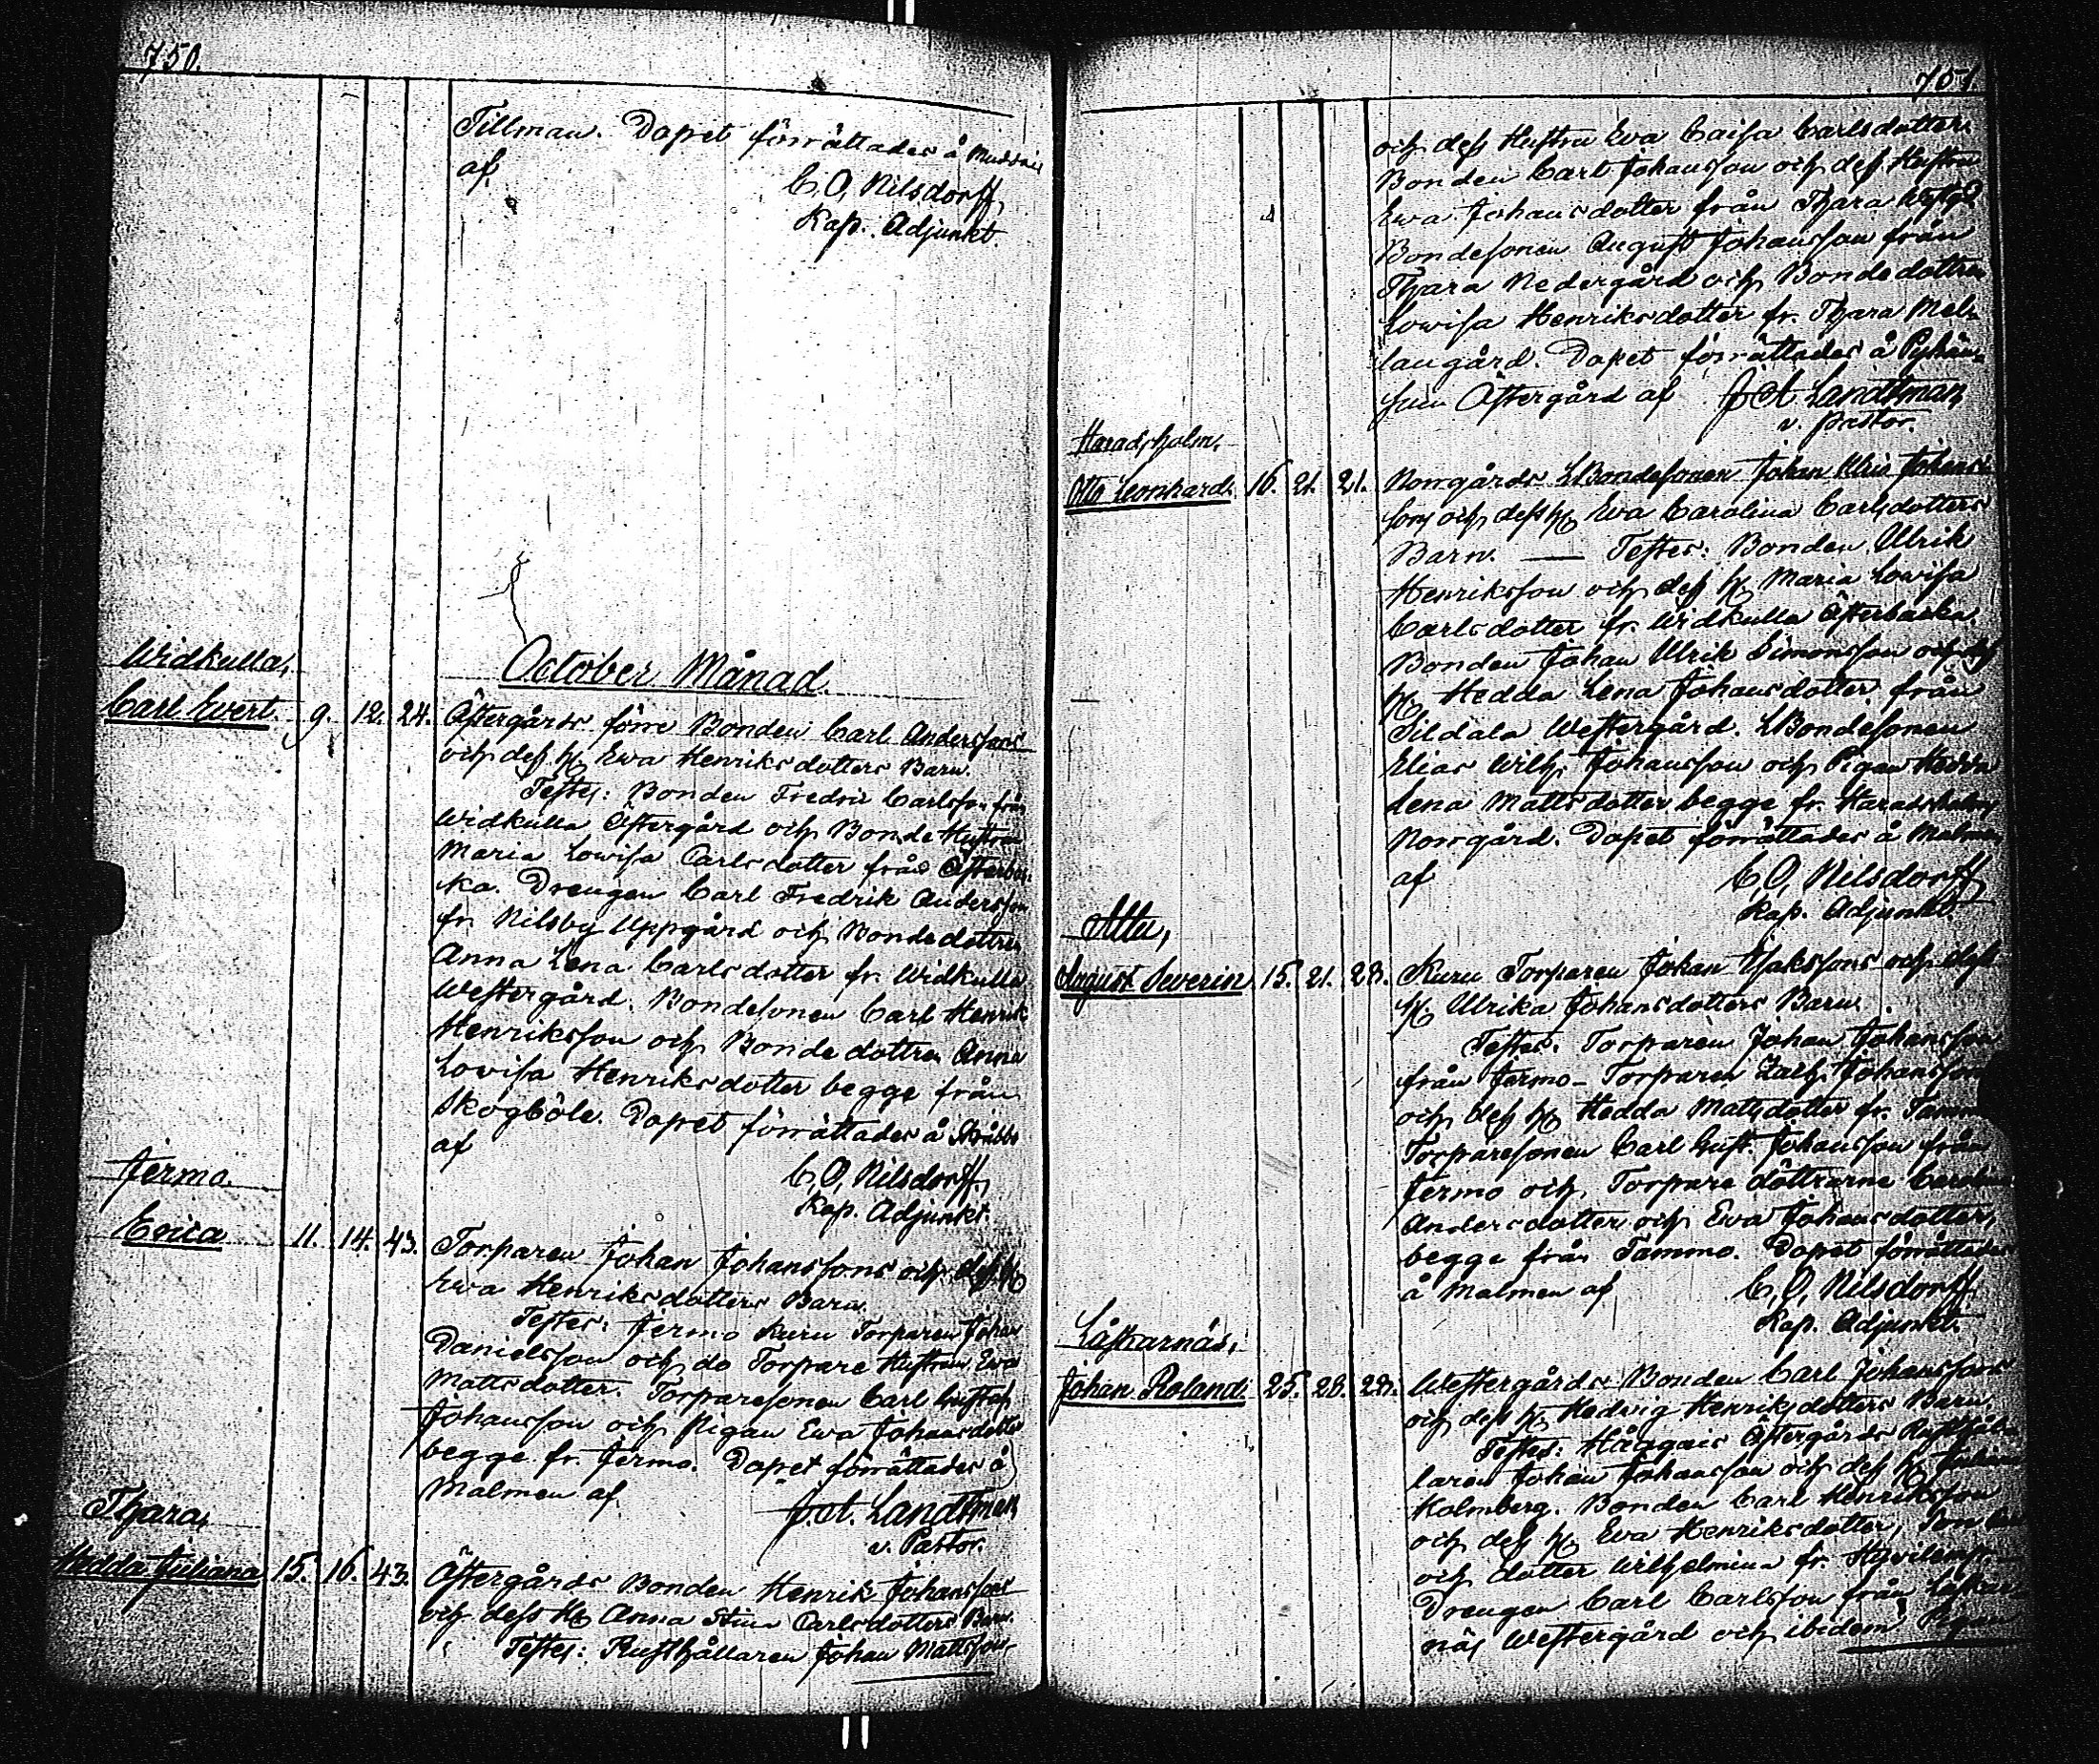 750.
Tillman. Dopet förrättades å
af
C. O. Nilsdorff,
Kap. Adjunkt.
October Månad.
Widkulla,
Carl Evert. 9. 12. 24. Östergårds förre Bonden Carl Anderssons
och dess H. Ewa Henriksdotters Barn.
Testes: Bonden Fredric Carlsson från
Widkulla Östergård och Bonde Hustrun
Maria Lowisa Carlsdotter från Österbac-
ka. Drengen Carl Fredrik Andersson
fr. Nilsby Uppgård och Bondedottren
Anna Lena Carlsdotter fr. Widkulla
Westergård. Bondesonen Carl Henrik
Henriksson och Bonde dottren Anna
Lowisa Henriksdotter begge från
Skogböle. Dopet förrättades å
af
C. O. Nilsdorff,
Kap. Adjunkt.
Jermo.
Erica 11. 14. 43. Torparen Johan Johanssons och dess H.
Ewa Henriksdotters Barn.
Testes: Jermo Kuru Torparen Johan
Danielsson och do Torpare Hustrun Ewa
Mattsdotter. Torparesonen Carl Gustaf
Johansson och Pigan Ewa Johansdotter
begge fr. Jermo. Dopet förrättades å
Malmen af
J. A. Landtman
v. Pastor.
Thara,
Hedda Juliana 15. 16. 43. Östergårds Bonden Henrik Johanssons
och dess H. Anna Stina Carlsdotters Barn.
Testes: Rusthållaren Johan Mattsson
751
och dess Hustru Eva Caisa Carlsdotter
Bonden Carl Johansson och dess Hustru
Ewa Johansdotter från Thara
Bondesonen August Johansson från
Thara Nedergård och Bondedottren
Lowisa Henriksdotter fr. Thara Mel-
langård. Dopet förrättades å Pyhän-
Östergård af J A Landtman
v. Pastor.
Haradsholm,
Otto Leonhard. 16. 21. 21. Norrgårds LBondesonen Johan Ulric Johans-
sons och dess H. Eva Carolina Carlsdotters
Barn. — Testes: Bonden Ulrik
Henriksson och dess H. Maria Lowisa
Carlsdotter fr. Widkulla Österbacka.
Bonden Johan Ulrik Simonsson och dess
H. Hedda Lena Johansdotter från
Sildala Westergård. LBondesonen
Elias Wilh. Johansson och Pigan Hedda
Lena Mattsdotter begge fr. Haradsholm
Norrgård. Dopet förrättades å Malmen
af
C. O. Nilsdorff
Kap. Adjunkt.
Attu,
August Severin 15. 21. 28. Kuru Torparen Johan Isakssons och dess
H. Ulrika Johansdotters Barn.
Testes. Torparen Johan Johansson
från Jermo – Torparen Zach. Johansson
och dess H. Hedda Mattsdotter fr. Tammo
Torparesonen Carl Gust. Johansson från
Jermo och Torpare döttrarne Carolina
Andersdotter och Ewa Johansdotter,
begge från Tammo. Dopet förrättades
å Malmen af
C. O. Nilsdorff
Kap. Adjunkt.
Låskarnäs,
Johan Roland. 25. 28. 28. Westergårds Bonden Carl Johanssons
och dess H. Hedvig Henriksdotters Barn.
Testes: Håggais Östergårds Rusthål-
laren Johan Johansson och dess H.
Holmberg. Bonden Carl Henriksson
och dess H. Eva Henriksdotter,
och dotter Wilhelmina fr.
Drengen Carl Carlsson från
näs Westergård och ibidem Pigan